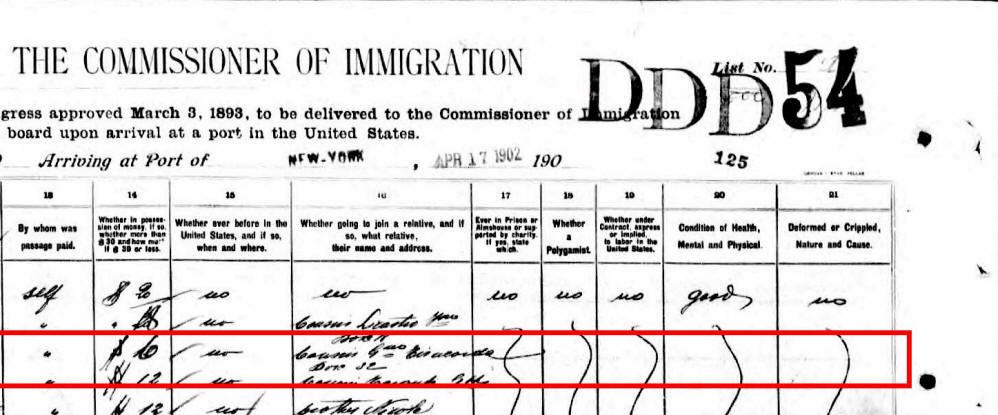 THE COMMISSIONER OF IMMIGRATION
DDD
List No.
54
gress approved March 3, 1893, to be delivered to the Commissioner of Immigration
board upon arrival at a port in the United States.
Arriving at Port of NEW-YORK, APR 17 1902 190
125
13 14 15 16 17 18 19 20 21
By whom was passage paid.
Whether in possession of money, if so, whether more than $30 and how much if $30 or less.
Whether ever before in the United States, and if so, when and where.
Whether going to join a relative, and if so, what relative, their name and address.
Ever in Prison or Almshouse or supported by charity. If yes, state which.
Whether a Polygamist.
Whether under Contract, express or implied, to labor in the United States.
Condition of Health, Mental and Physical.
Deformed or Crippled, Nature and Cause.
self $ no no no no no good no
" no cousin
" $ 6 no cousin
Box 32
" $ 12 no cousin
$ 12 no brother Nicola